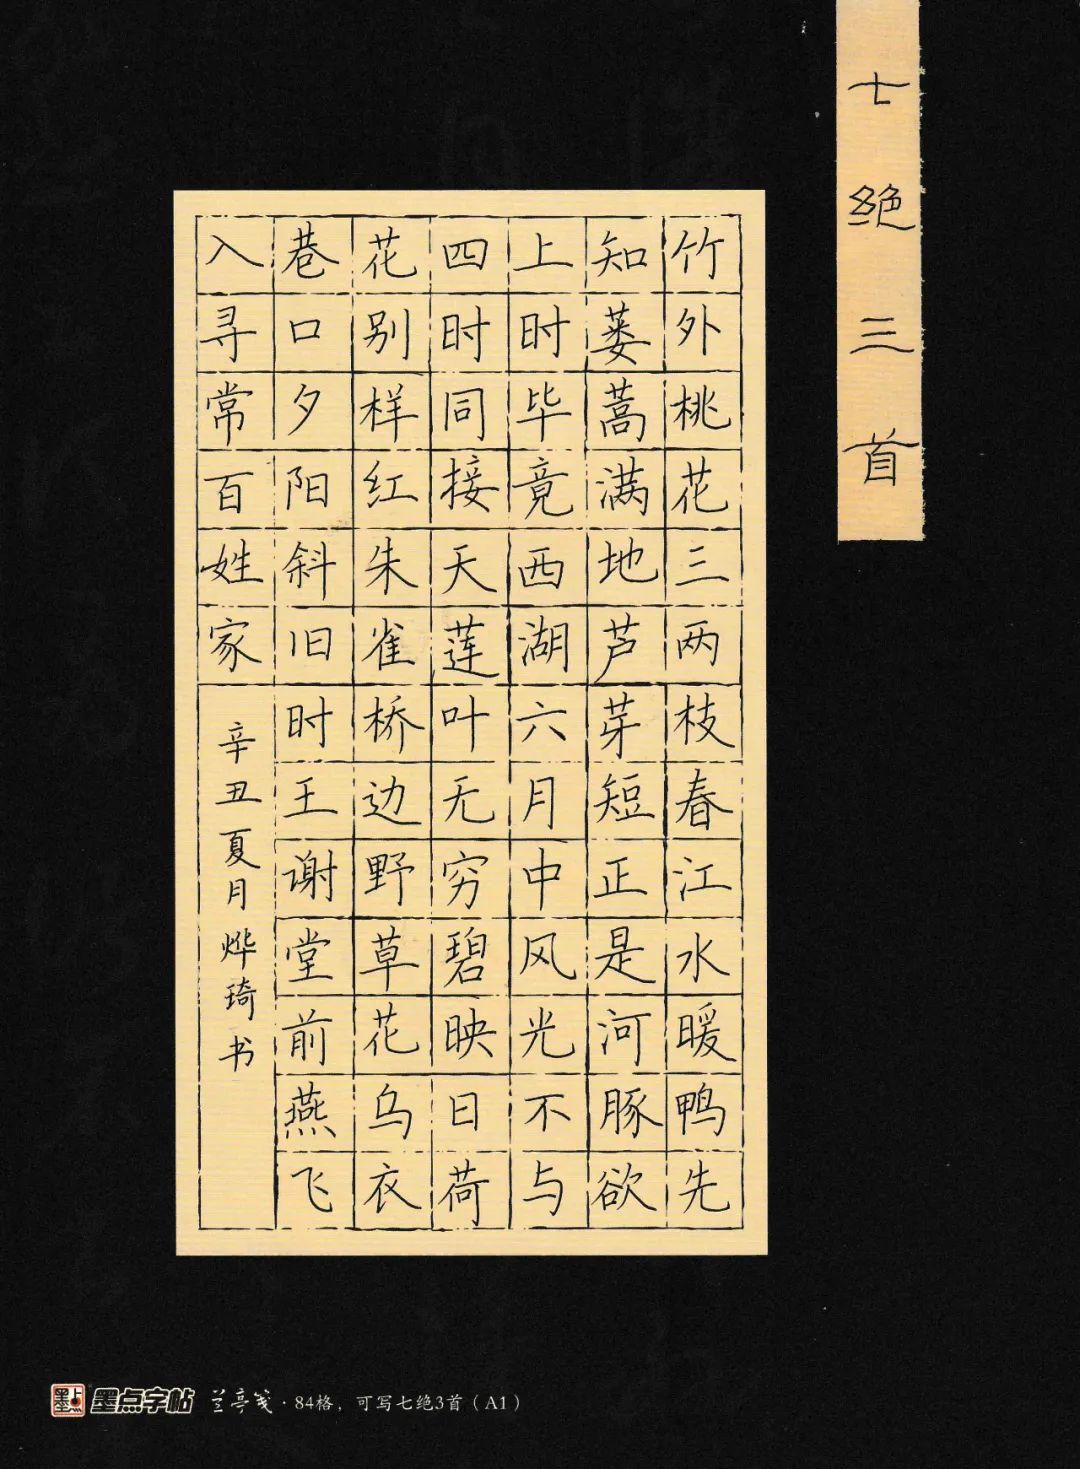 七绝三首
竹外桃花三两枝春江水暖鸭先
知蒌蒿满地芦芽短正是河豚欲
上时毕竟西湖六月中风光不与
四时同接天莲叶无穷碧映日荷
花别样红朱雀桥边野草花乌衣
巷口夕阳斜旧时王谢堂前燕飞
入寻常百姓家
辛丑夏月烨琦书
墨点 墨点字帖 兰亭笺·84格，可写七绝3首（A1）